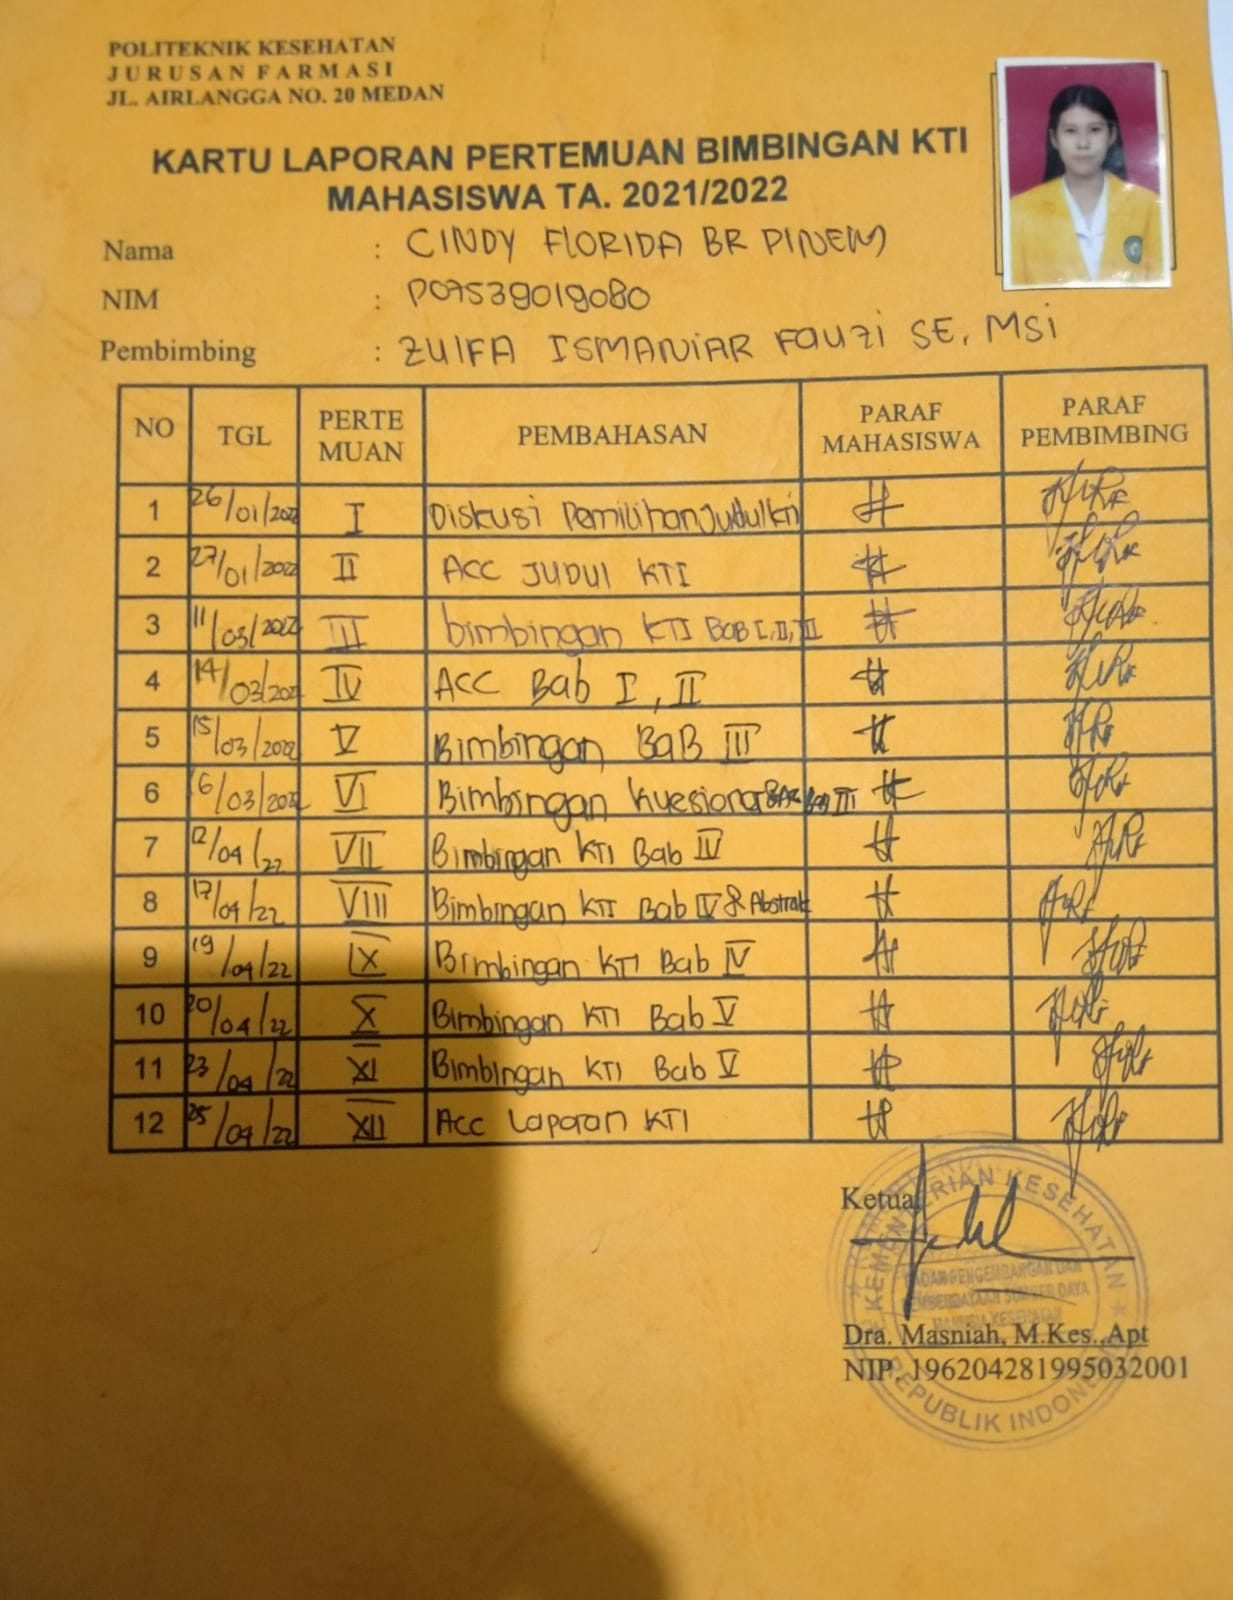 POLITEKNIK KESEHATAN
JURUSAN FARMASI
JL. AIRLANGGA NO. 20 MEDAN
KARTU LAPORAN PERTEMUAN BIMBINGAN KTI
MAHASISWA TA. 2021/2022
Nama : CINDY FLORIDA BR PINEM
NIM : P07539019080
Pembimbing : ZULFA ISMANIAR FAUZI SE, MSi
NO TGL PERTE MUAN PEMBAHASAN PARAF MAHASISWA PARAF PEMBIMBING
1 26/01/2022 I Diskusi Pemilihan Judul KTI
2 27/01/2022 II ACC JUDUL KTI
3 11/03/2022 III bimbingan KTI BAB I, II, III
4 14/03/2022 IV ACC Bab I, II
5 15/03/2022 V Bimbingan BAB III
6 16/03/2022 VI Bimbingan Kuesioner Bab III
7 12/04/22 VII Bimbingan KTI Bab IV
8 17/04/22 VIII Bimbingan KTI Bab IV & Abstrak
9 19/04/22 IX Bimbingan KTI Bab IV
10 20/04/22 X Bimbingan KTI Bab V
11 23/04/22 XI Bimbingan KTI Bab V
12 25/04/22 XII Acc Laporan KTI
Ketua
KEMENTERIAN KESEHATAN
BADAN PENGEMBANGAN DAN
PEMBERDAYAAN SUMBER DAYA
MANUSIA KESEHATAN
REPUBLIK INDONESIA
Dra. Masniah, M.Kes.,Apt
NIP. 196204281995032001